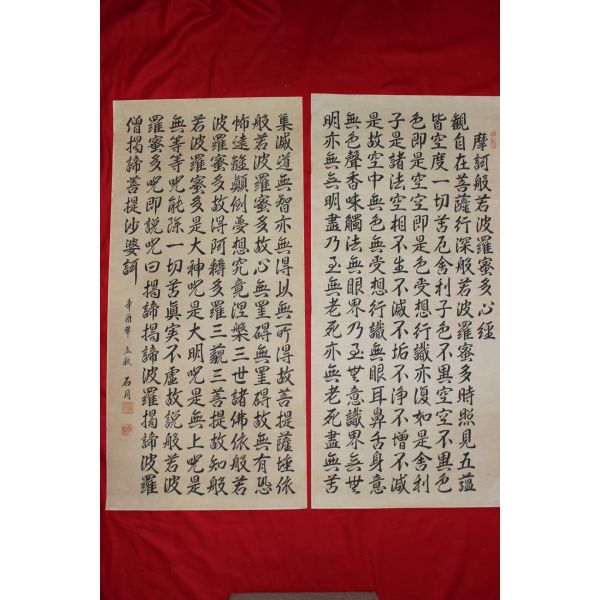 摩訶般若波羅蜜多心經
観自在菩薩行深般若波羅蜜多時照見五蘊
皆空度一切苦厄舎利子色不異空空不異色
色即是空空即是色受想行識亦復如是舎利
子是諸法空相不生不滅不垢不浄不増不減
是故空中無色無受想行識無眼耳鼻舌身意
無色聲香味觸法無眼界乃至無意識界無無
明亦無無明盡乃至無老死亦無老死盡無苦
集滅道無智亦無得以無所得故菩提薩埵依
般若波羅蜜多故心無罣碍無罣碍故無有恐
怖遠離顛倒夢想究竟涅槃三世諸佛依般若
波羅蜜多故得阿耨多羅三藐三菩提故知般
若波羅蜜多是大神呪是大明呪是無上呪是
無等等呪能除一切苦眞実不虚故説般若波
羅蜜多呪即説呪曰揭諦揭諦波羅揭諦波羅
僧揭諦菩提沙婆訶
辛酉年立秋 石月